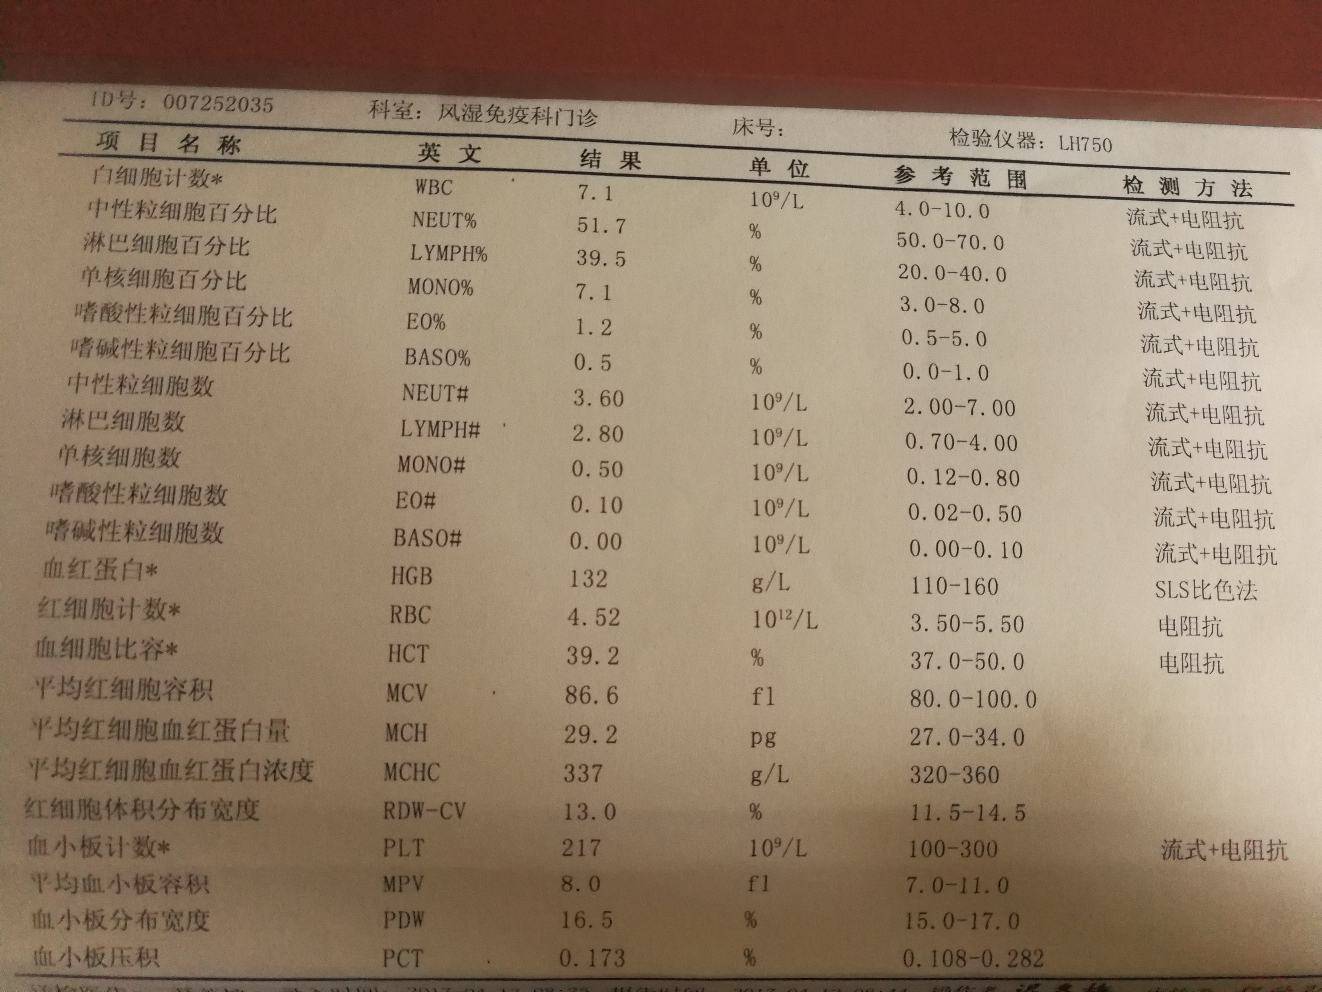 ID号: 007252035 科室: 风湿免疫科门诊 床号: 检验仪器: LH750
项目名称 英文 结果 单位 参考范围 检测方法
白细胞计数* WBC 7.1 10⁹/L 4.0-10.0 流式+电阻抗
中性粒细胞百分比 NEUT% 51.7 % 50.0-70.0 流式+电阻抗
淋巴细胞百分比 LYMPH% 39.5 % 20.0-40.0 流式+电阻抗
单核细胞百分比 MONO% 7.1 % 3.0-8.0 流式+电阻抗
嗜酸性粒细胞百分比 EO% 1.2 % 0.5-5.0 流式+电阻抗
嗜碱性粒细胞百分比 BASO% 0.5 % 0.0-1.0 流式+电阻抗
中性粒细胞数 NEUT# 3.60 10⁹/L 2.00-7.00 流式+电阻抗
淋巴细胞数 LYMPH# 2.80 10⁹/L 0.70-4.00 流式+电阻抗
单核细胞数 MONO# 0.50 10⁹/L 0.12-0.80 流式+电阻抗
嗜酸性粒细胞数 EO# 0.10 10⁹/L 0.02-0.50 流式+电阻抗
嗜碱性粒细胞数 BASO# 0.00 10⁹/L 0.00-0.10 流式+电阻抗
血红蛋白* HGB 132 g/L 110-160 SLS比色法
红细胞计数* RBC 4.52 10¹²/L 3.50-5.50 电阻抗
血细胞比容* HCT 39.2 % 37.0-50.0 电阻抗
平均红细胞容积 MCV 86.6 fl 80.0-100.0
平均红细胞血红蛋白量 MCH 29.2 pg 27.0-34.0
平均红细胞血红蛋白浓度 MCHC 337 g/L 320-360
红细胞体积分布宽度 RDW-CV 13.0 % 11.5-14.5
血小板计数* PLT 217 10⁹/L 100-300 流式+电阻抗
平均血小板容积 MPV 8.0 fl 7.0-11.0
血小板分布宽度 PDW 16.5 % 15.0-17.0
血小板压积 PCT 0.173 % 0.108-0.282